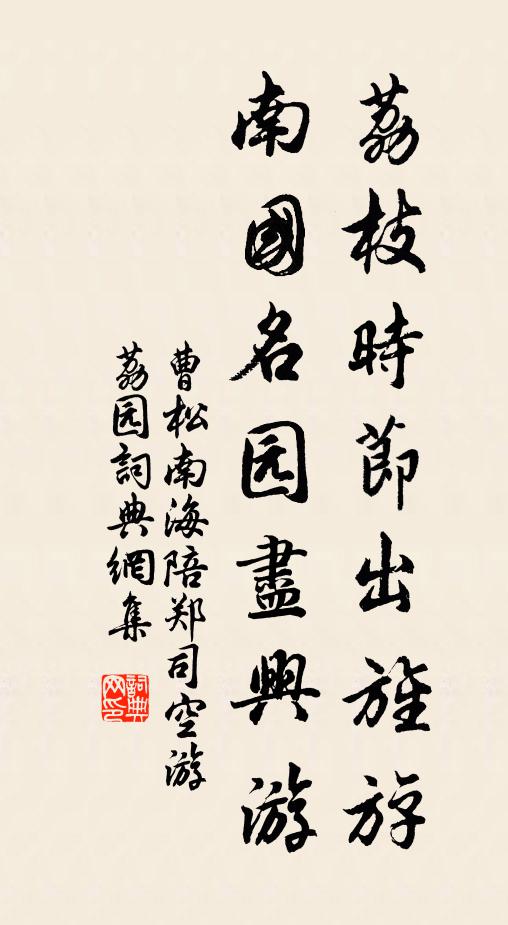 荔枝時莭出旌斿
南國名园盡興游
曹松南海陪郑司空游
荔园詞典網集
詞典
网印